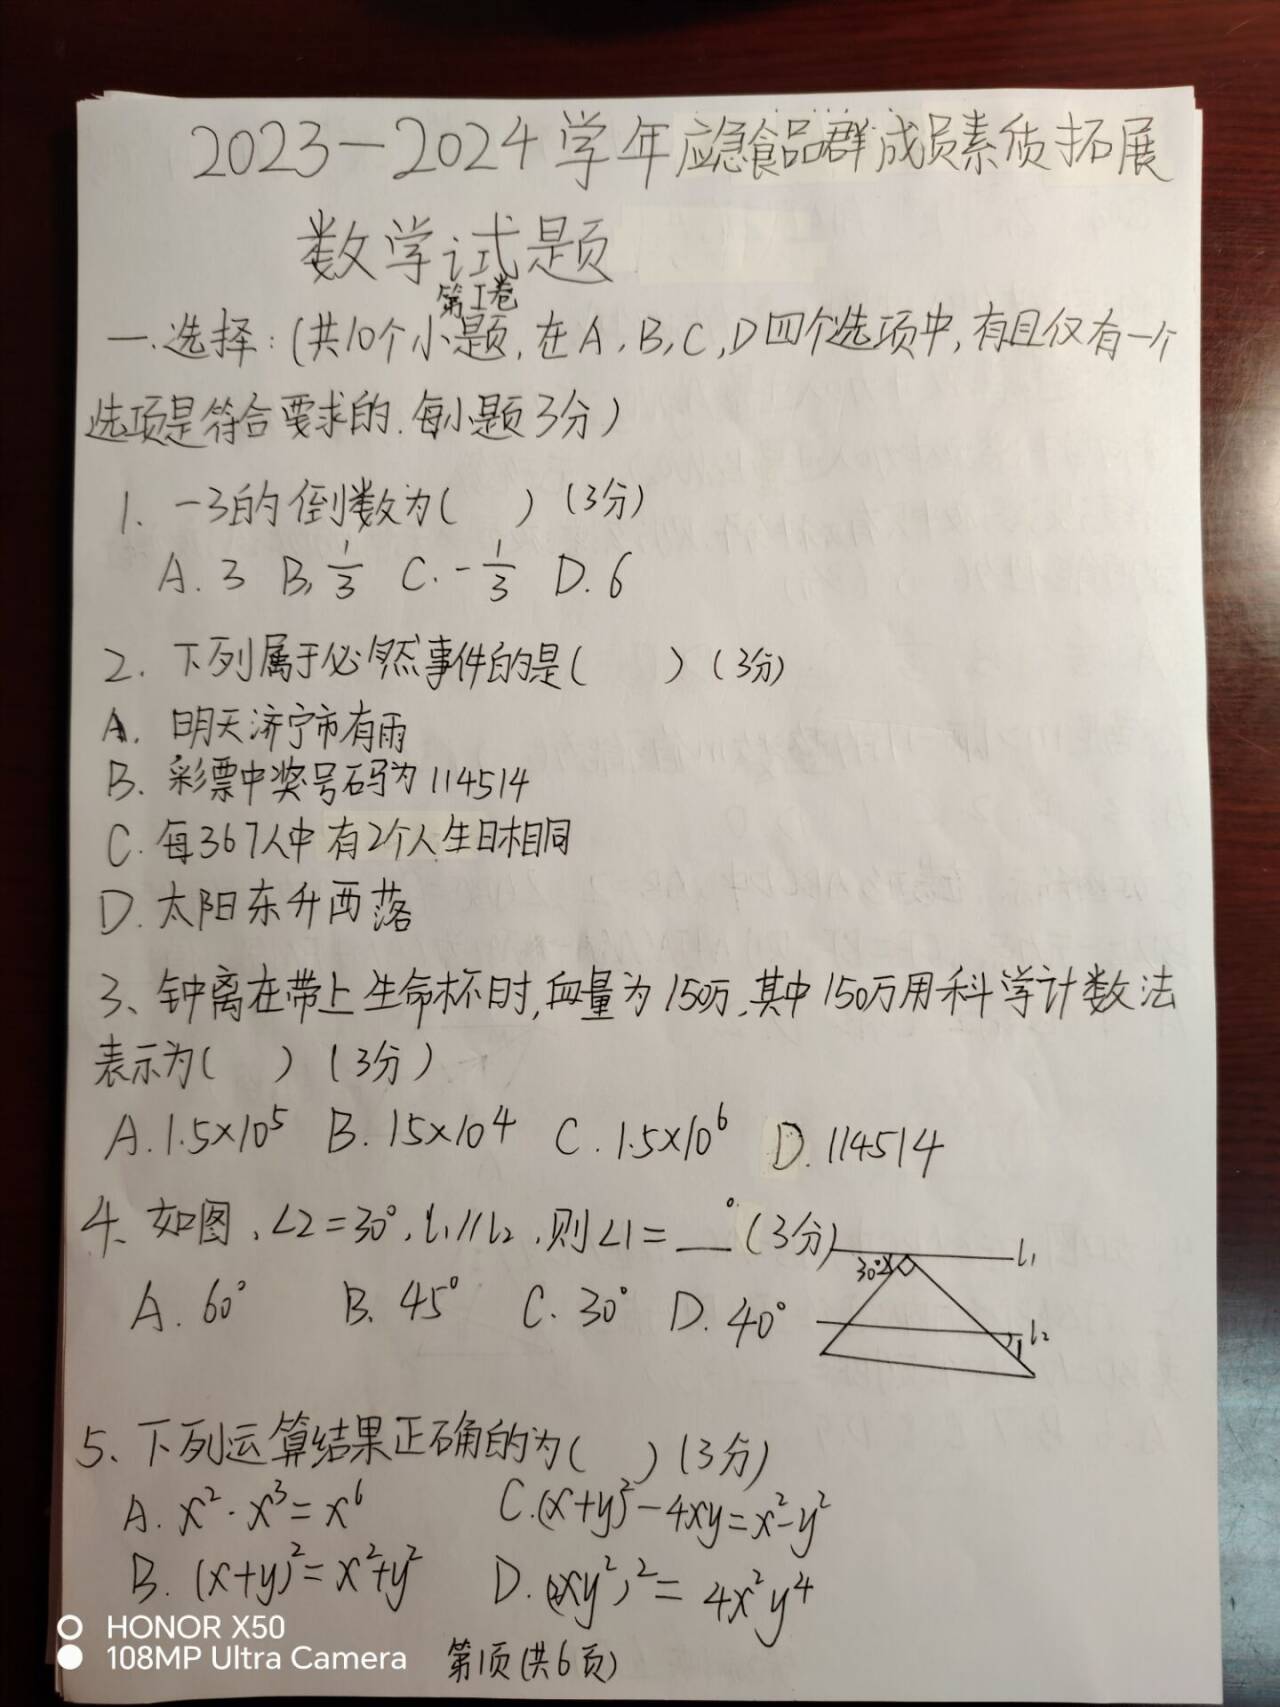 2023-2024学年应急食品群成员素质拓展
数学试题
第I卷
一.选择:(共10个小题,在A,B,C,D四个选项中,有且仅有一个
选项是符合要求的.每小题3分)
1. -3的倒数为( ) (3分)
A. 3 B. 1/3 C. -1/3 D. 6
2. 下列属于必然事件的是( ) (3分)
A. 明天济宁市有雨
B. 彩票中奖号码为114514
C. 每367人中有2个人生日相同
D. 太阳东升西落
3、钟离在带上生命杯时,血量为150万,其中150万用科学计数法
表示为( ) (3分)
A. 1.5×10⁵ B. 15×10⁴ C. 1.5×10⁶ D. 114514
4、如图,∠2=30°,l₁//l₂,则∠1=__° (3分)
A. 60° B. 45° C. 30° D. 40°
30° 2 l₁
l₂
1
5、下列运算结果正确的为( ) (3分)
A. x²·x³=x⁶ C. (x+y)²-4xy=x²-y²
B. (x+y)²=x²+y² D. (2xy²)²=4x²y⁴
第1页(共6页)
HONOR X50
108MP Ultra Camera